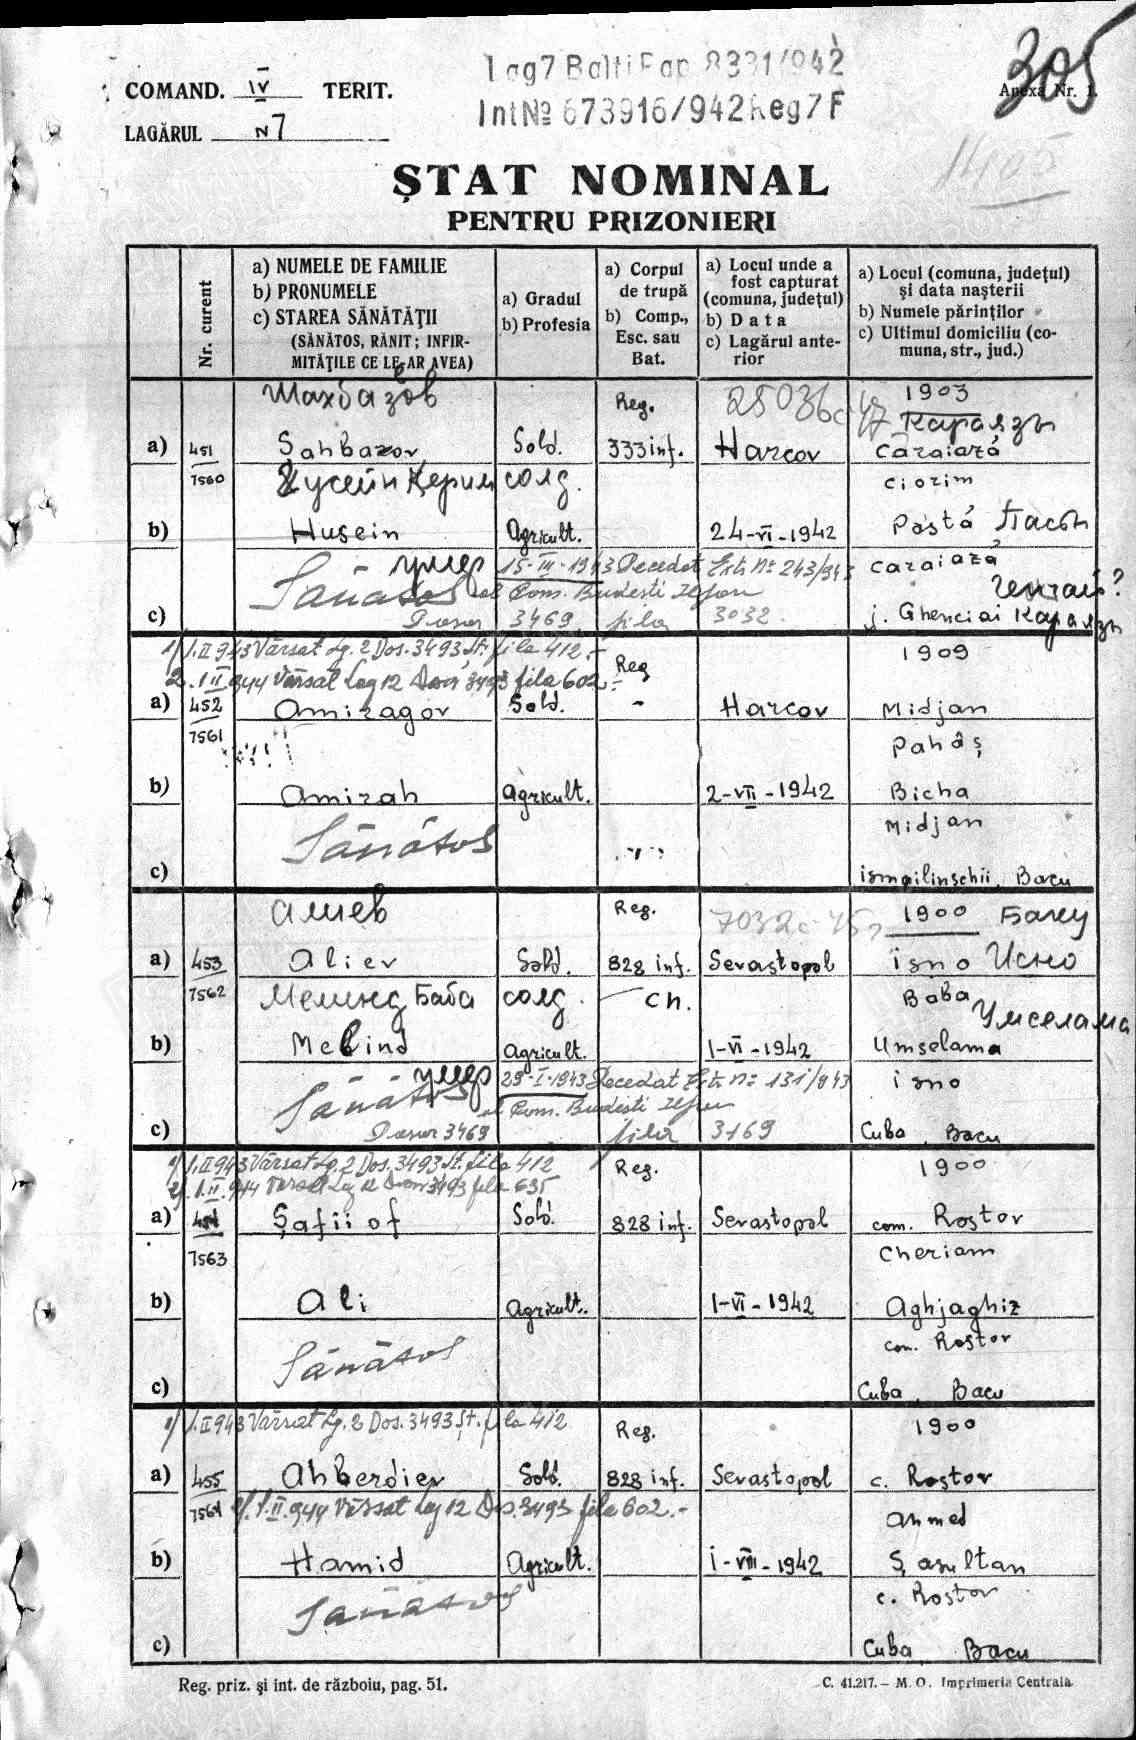 Lag7 Balti Pap 8331/942
Int№ 673916/942 Reg7F
305
COMAND. IV TERIT.
Anexa Nr. 1.
LAGĂRUL N 7
1405
ȘTAT NOMINAL
PENTRU PRIZONIERI
Nr. curent
a) NUMELE DE FAMILIE
b) PRONUMELE
c) STAREA SĂNĂTĂȚII
(SĂNĂTOS, RĂNIT; INFIR-
MITĂȚILE CE LE-AR AVEA)
a) Gradul
b) Profesia
a) Corpul
de trupă
b) Comp.,
Esc. sau
Bat.
a) Locul unde a
fost capturat
(comuna, județul)
b) Data
c) Lagărul ante-
rior
a) Locul (comuna, județul)
și data nașterii
b) Numele părinților
c) Ultimul domiciliu (co-
muna, str., jud.)
Шахбазов Reg. 25036с-47 1903
Караязы
a) 451 Șahbazov Sold. 333 inf. Harcov Caraiază
7560 Хусейн Керим солд. Ciorim
b) Husein Agricult. 24-VI-1942 Pastá Пасты
умер 15-III-1943 Decedat Ext. No 243/943 Caraiază
Sănătos al Com. Budesti Ilfov Генгаи?
c) Dosar 3469 fila 3032. j. Ghenciai Караязы
1/ 1.II 943 Vărsat Lg. 2 Dos. 3493 St. fila 412.- 1909
2. 1 II 944 Vărsat Lag 12 Dosar 3493 fila 602.- Reg
a) 452 Amiragov Sold. - Harcov Midjan
7561 Pahăș
b) Amirah Agricult. 2-VII-1942 Bicha
Sănătos Midjan
c) ismailinschii, Bacu
Алиев Reg. 7032с-45г 1900 Баку
a) 453 Aliev Sold. 828 inf. Sevastopol isno Исно
7562 Мелинд Баба солд. Ch. Baba
Умселама
b) Melind Agricult. 1-VI-1942 Umselama
умер 29-I-1943 Decedat Ext. No 131/943 isno
Sănătos al Com. Budesti Ilfov
c) Dosar 3469 fila 3169 Cuba, Bacu
1/ 1.II 943 Vărsat Lg. 2 Dos. 3493 St. fila 412 Reg. 1900
2/. 1.II.944 Vărsat Lag 12 Dosar 3493 fila 635
a) 454 Șafiiof Sold. 828 inf. Sevastopol com. Roștov
7563 Cheriam
b) Ali Agricult. 1-VI-1942 Aghjaghiz
Sănătos com. Roștov
c) Cuba, Bacu
1/ 1.II 943 Vărsat Lg. 2 Dos. 3493 Șt. fila 412 Reg. 1900
a) 455 Ahberdiev Sold. 828 inf. Sevastopol c. Roștov
7564 2/. 1.II.944 Vărsat Lag 12 Dos. 3493 fila 602.- Ahmed
b) Hamid Agricult. 1-VIII-1942 Șasultan
Sănătos c. Roștov
c) Cuba Bacu
Reg. priz. și int. de războiu, pag. 51.
C. 41.217. – M. O. Imprimeria Centrală.